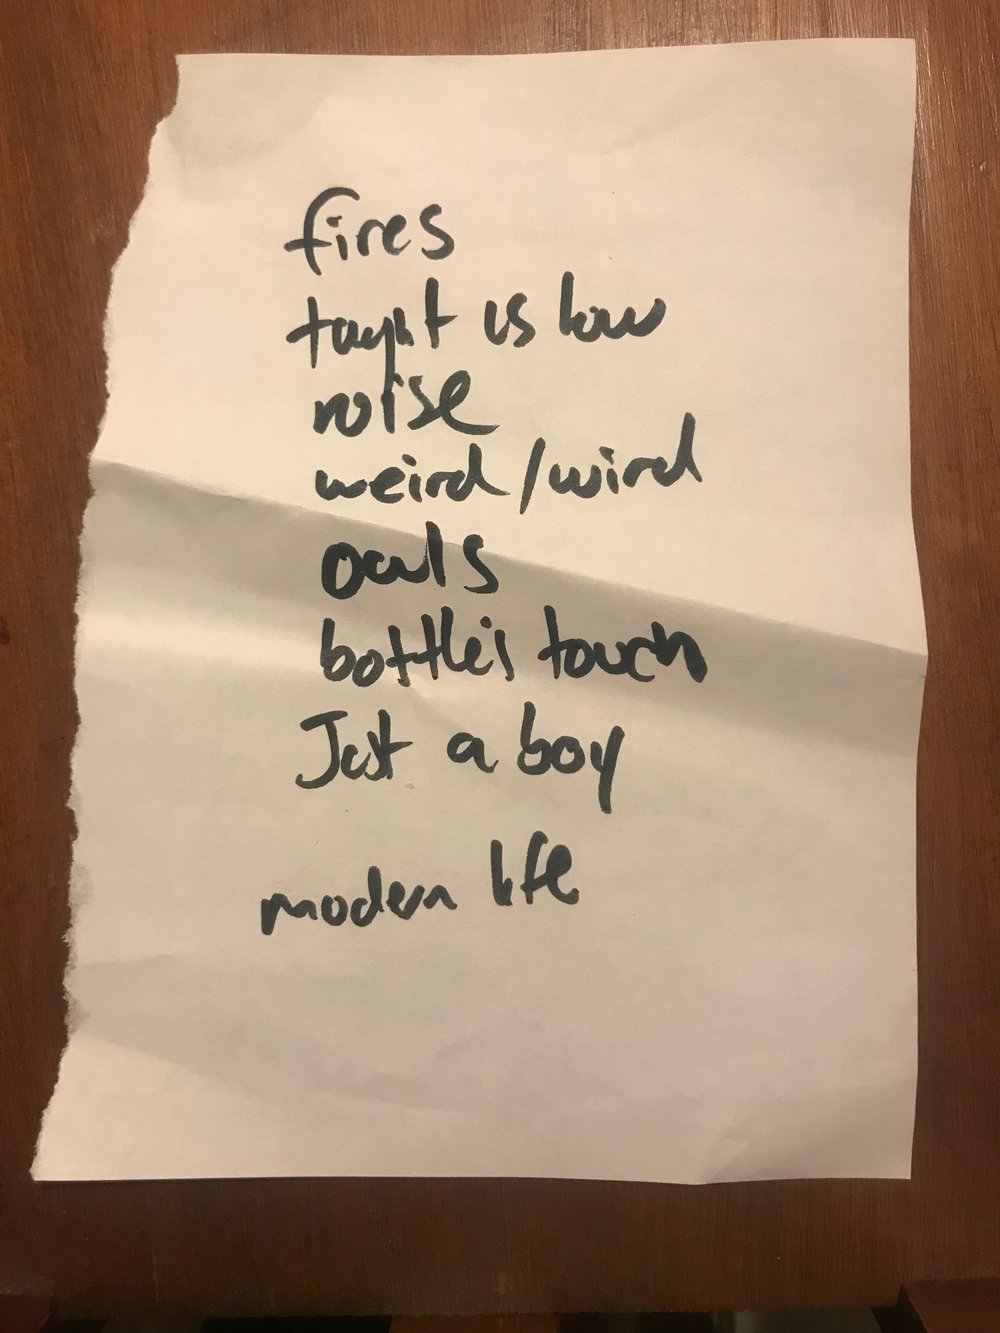 fires
taught us low
noise
weird/wird
owls
bottle's touch
Just a boy
modern life